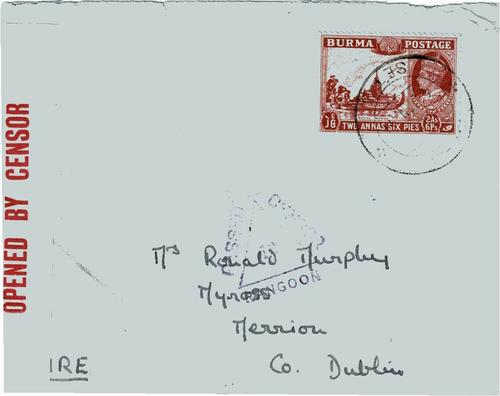 BURMA POSTAGE
TWO ANNAS SIX PIES
2As 6Ps
OPENED BY CENSOR
PASSED
RANGOON
Mrs Ronald Murphy
Myross
Merrion
Co. Dublin
IRE